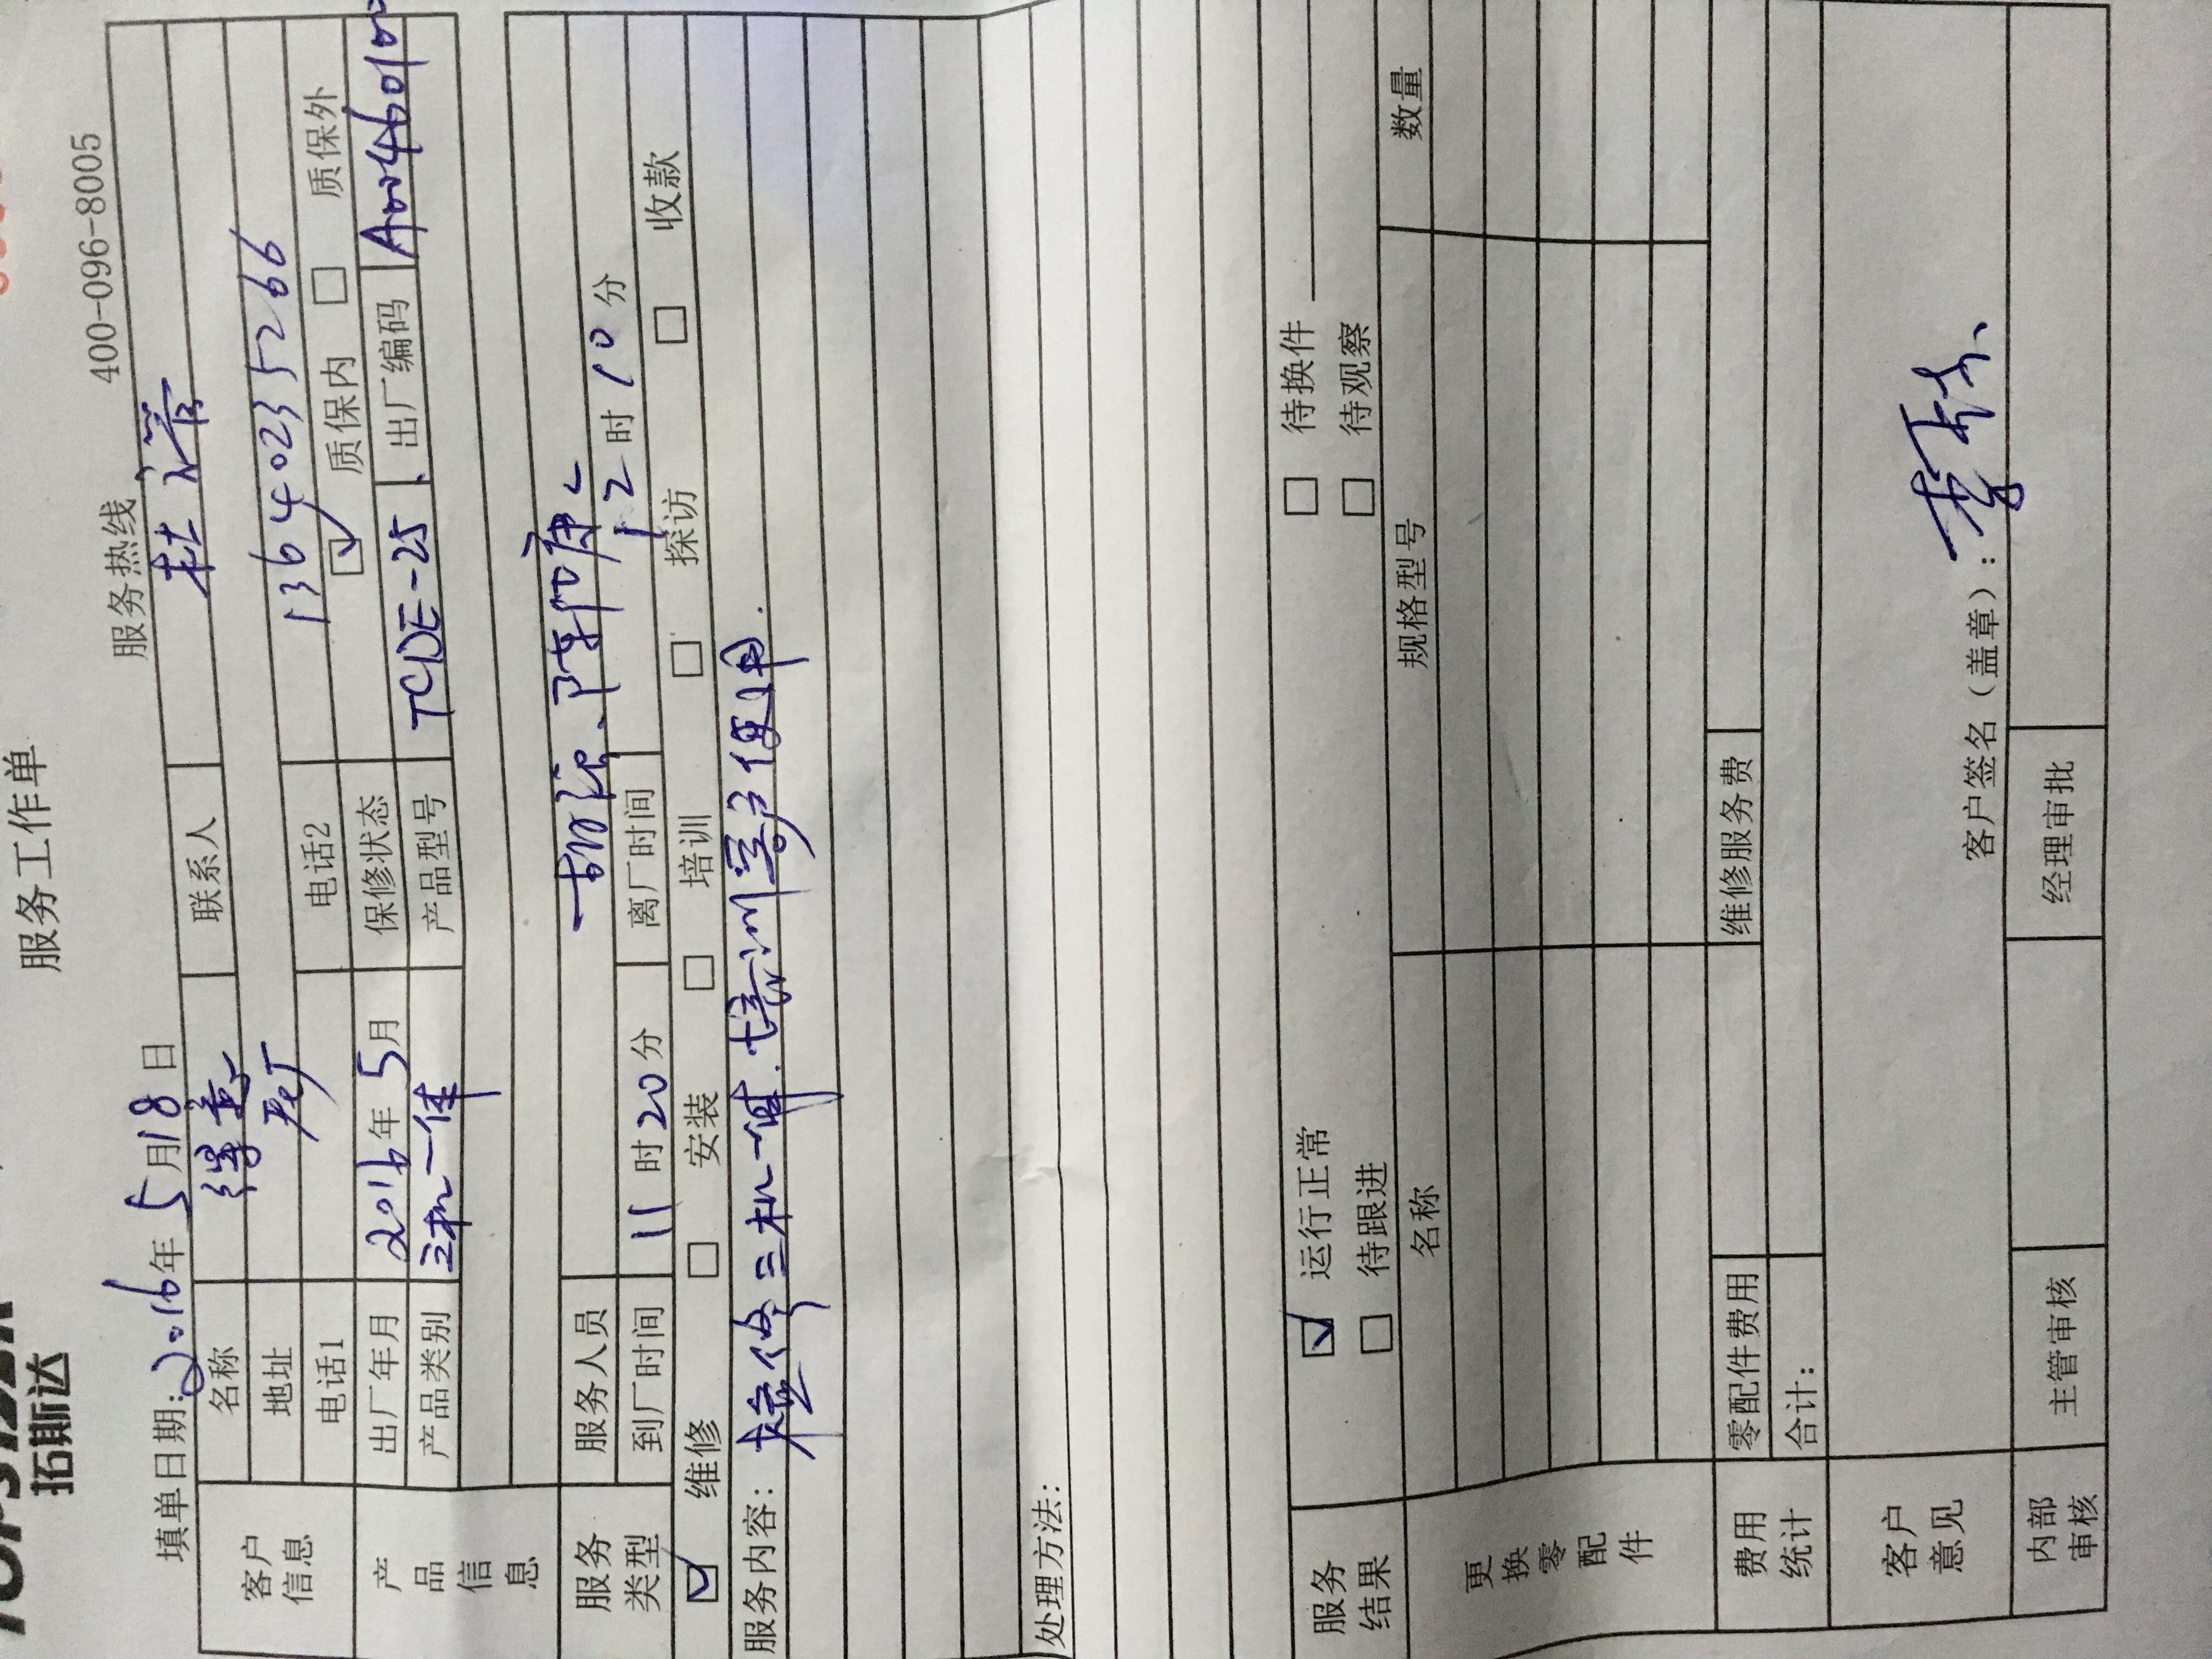 拓斯达
服务工作单
填单日期: 2016年 5月18日 服务热线 400-096-8005
客户信息
名称 联系人 杜
地址
电话1 电话2 13640235266
产品信息
出厂年月 2016年 5月 保修状态 ☑ 质保内 □ 质保外
产品类别 三机一体 产品型号 TCDE-25 出厂编码
服务类型
服务人员
到厂时间 11时20分 离厂时间 12时10分
☑ 维修 □ 安装 □ 培训 □ 探访 □ 收款
服务内容: 检修三机一体.培训客户使用.
处理方法:
服务结果
☑ 运行正常 □ 待换件
□ 待跟进 □ 待观察
更换零配件
名称 规格型号 数量
费用统计
零配件费用 维修服务费
合计:
客户意见
客户签名(盖章):
内部审核
主管审核 经理审批